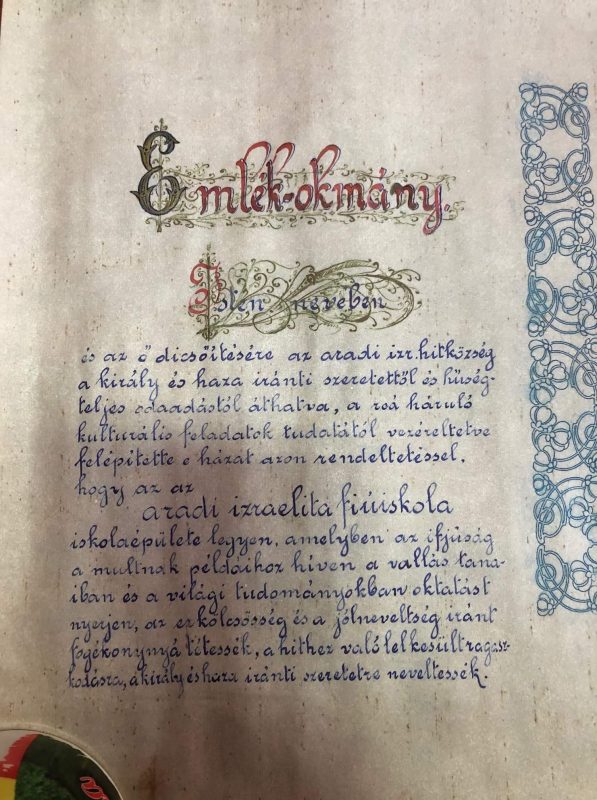 Emlék-okmány.
Isten nevében
és az ő dicsőitésére az aradi izr. hitközség
a király és haza iránti szeretettől és hűség-
teljes odaadástól áthatva, a reá háruló
kulturális feladatok tudatától vezéreltetve
felépitette e házat azon rendeltetéssel,
hogy az az
aradi izraelita fiúiskola
iskolaépülete legyen, amelyben az ifjúság
a multnak példáihoz híven a vallás tana-
iban és a világi tudományokban oktatást
nyerjen, az erkölcsösség és a jólneveltség iránt
fogékonynyá tétessék, a hithez való lelkesült ragasz-
kodásra, a király és haza iránti szeretetre neveltessék.